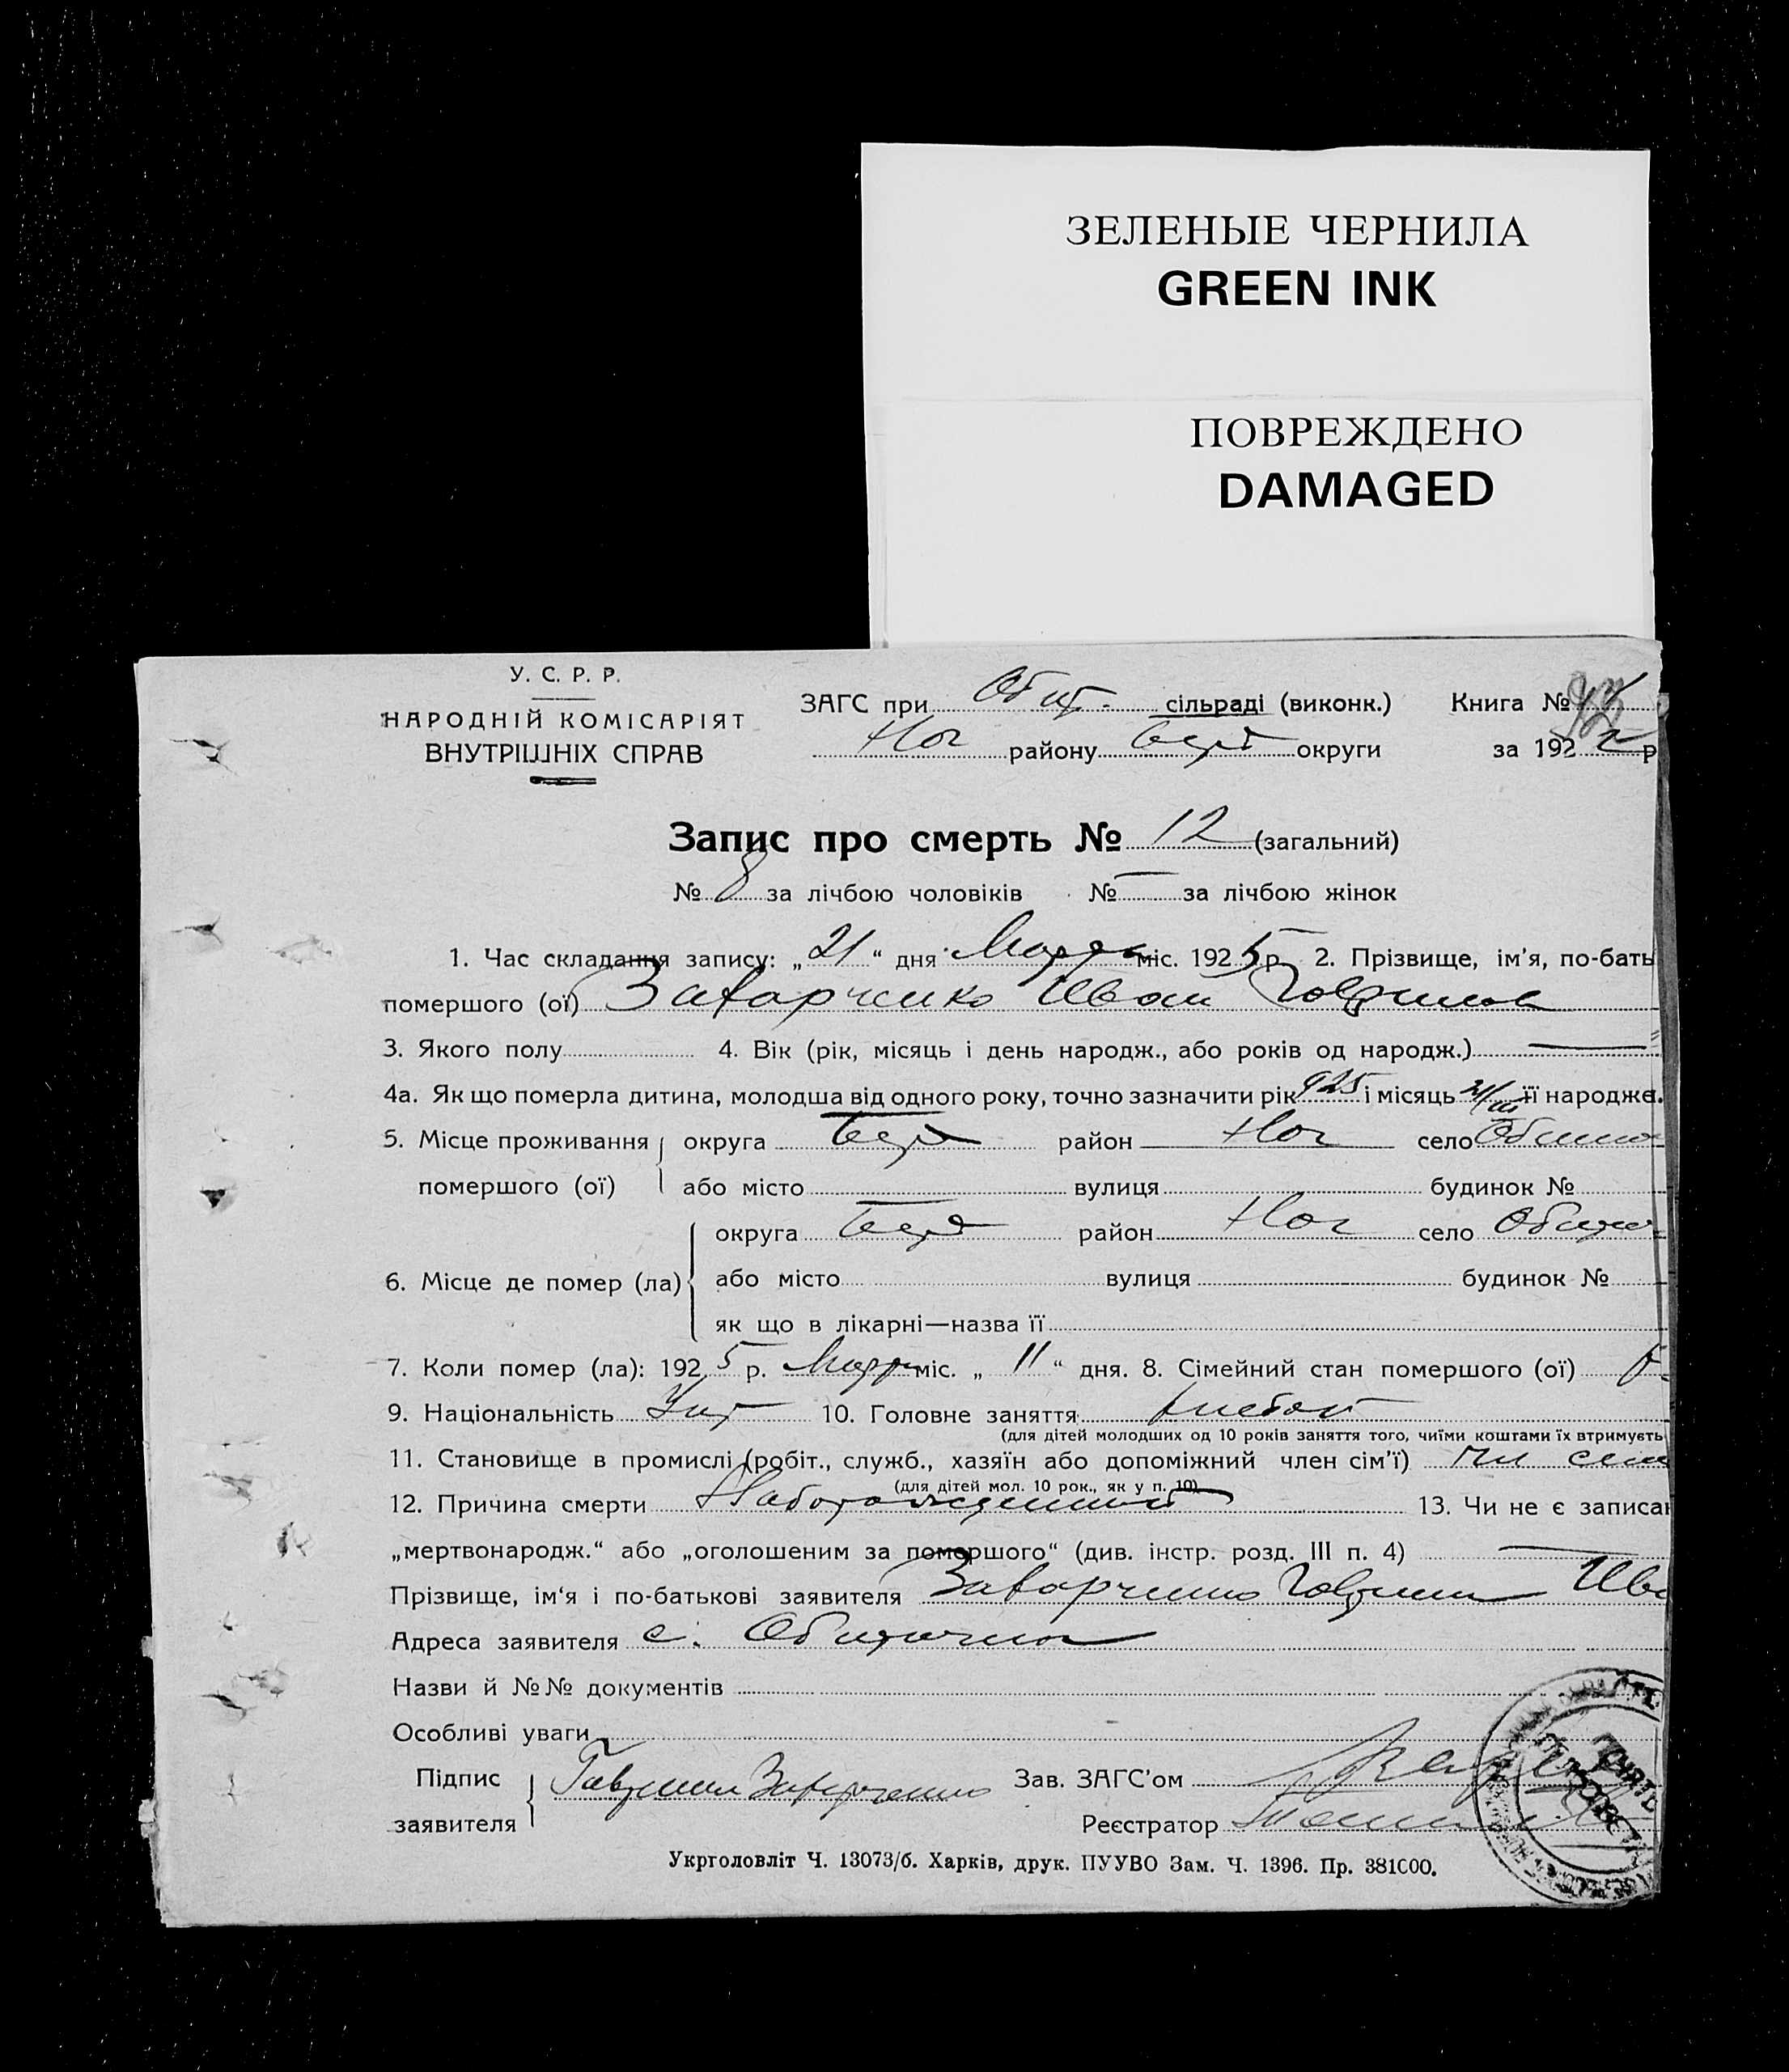 ЗЕЛЕНЫЕ ЧЕРНИЛА
GREEN INK
ПОВРЕЖДЕНО
DAMAGED
У. С. Р. Р.
НАРОДНІЙ КОМІСАРІЯТ
ВНУТРІШНІХ СПРАВ
ЗАГС при Обит. сільраді (виконк.) Книга №
Ног району округи за 192 р
Запис про смерть № 12 (загальний)
№ 8 за лічбою чоловіків № — за лічбою жінок
1. Час складання запису: „21“ дня Марта міс. 1925 р. 2. Прізвище, ім'я, по-бать
помершого (ої) Заварченко Иван Гаврилов
3. Якого полу 4. Вік (рік, місяць і день народж., або років од народж.) —
4а. Як що померла дитина, молодша від одного року, точно зазначити рік 925 і місяць її народже.
5. Місце проживання округа район Ног село
помершого (ої) або місто вулиця будинок №
округа район Ног село
6. Місце де помер (ла) або місто вулиця будинок №
як що в лікарні—назва її
7. Коли помер (ла): 1925 р. Март міс. „11“ дня. 8. Сімейний стан помершого (ої)
9. Національність Укр 10. Головне заняття хлебоп
(для дітей молодших од 10 років заняття того, чиїми коштами їх втримуєть
11. Становище в промислі (робіт., служб., хазяїн або допоміжний член сім'ї) чл сем
(для дітей мол. 10 рок., як у п. 10)
12. Причина смерти 13. Чи не є записан
„мертвонародж.“ або „оголошеним за помершого“ (див. інстр. розд. III п. 4) —
Прізвище, ім'я і по-батькові заявителя Заварченко Гаврил Ива
Адреса заявителя с. Обиточная
Назви й №№ документів
Особливі уваги
Підпис Гавриил Заварченко Зав. ЗАГС'ом
заявителя Реєстратор
Укрголовліт Ч. 13073/б. Харків, друк. ПУУВО Зам. Ч. 1396. Пр. 381000.